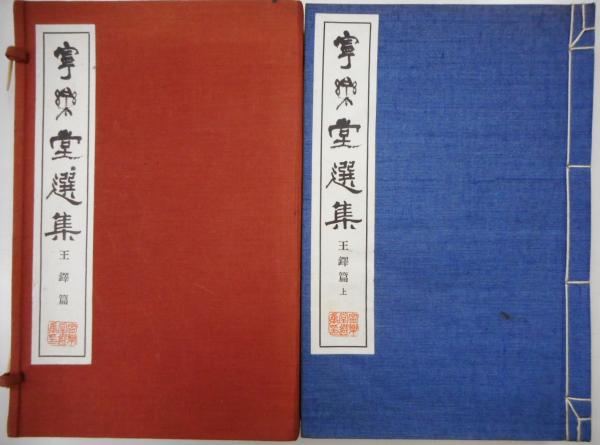 寧樂堂選集
王鐸篇
寧樂堂選集
王鐸篇上